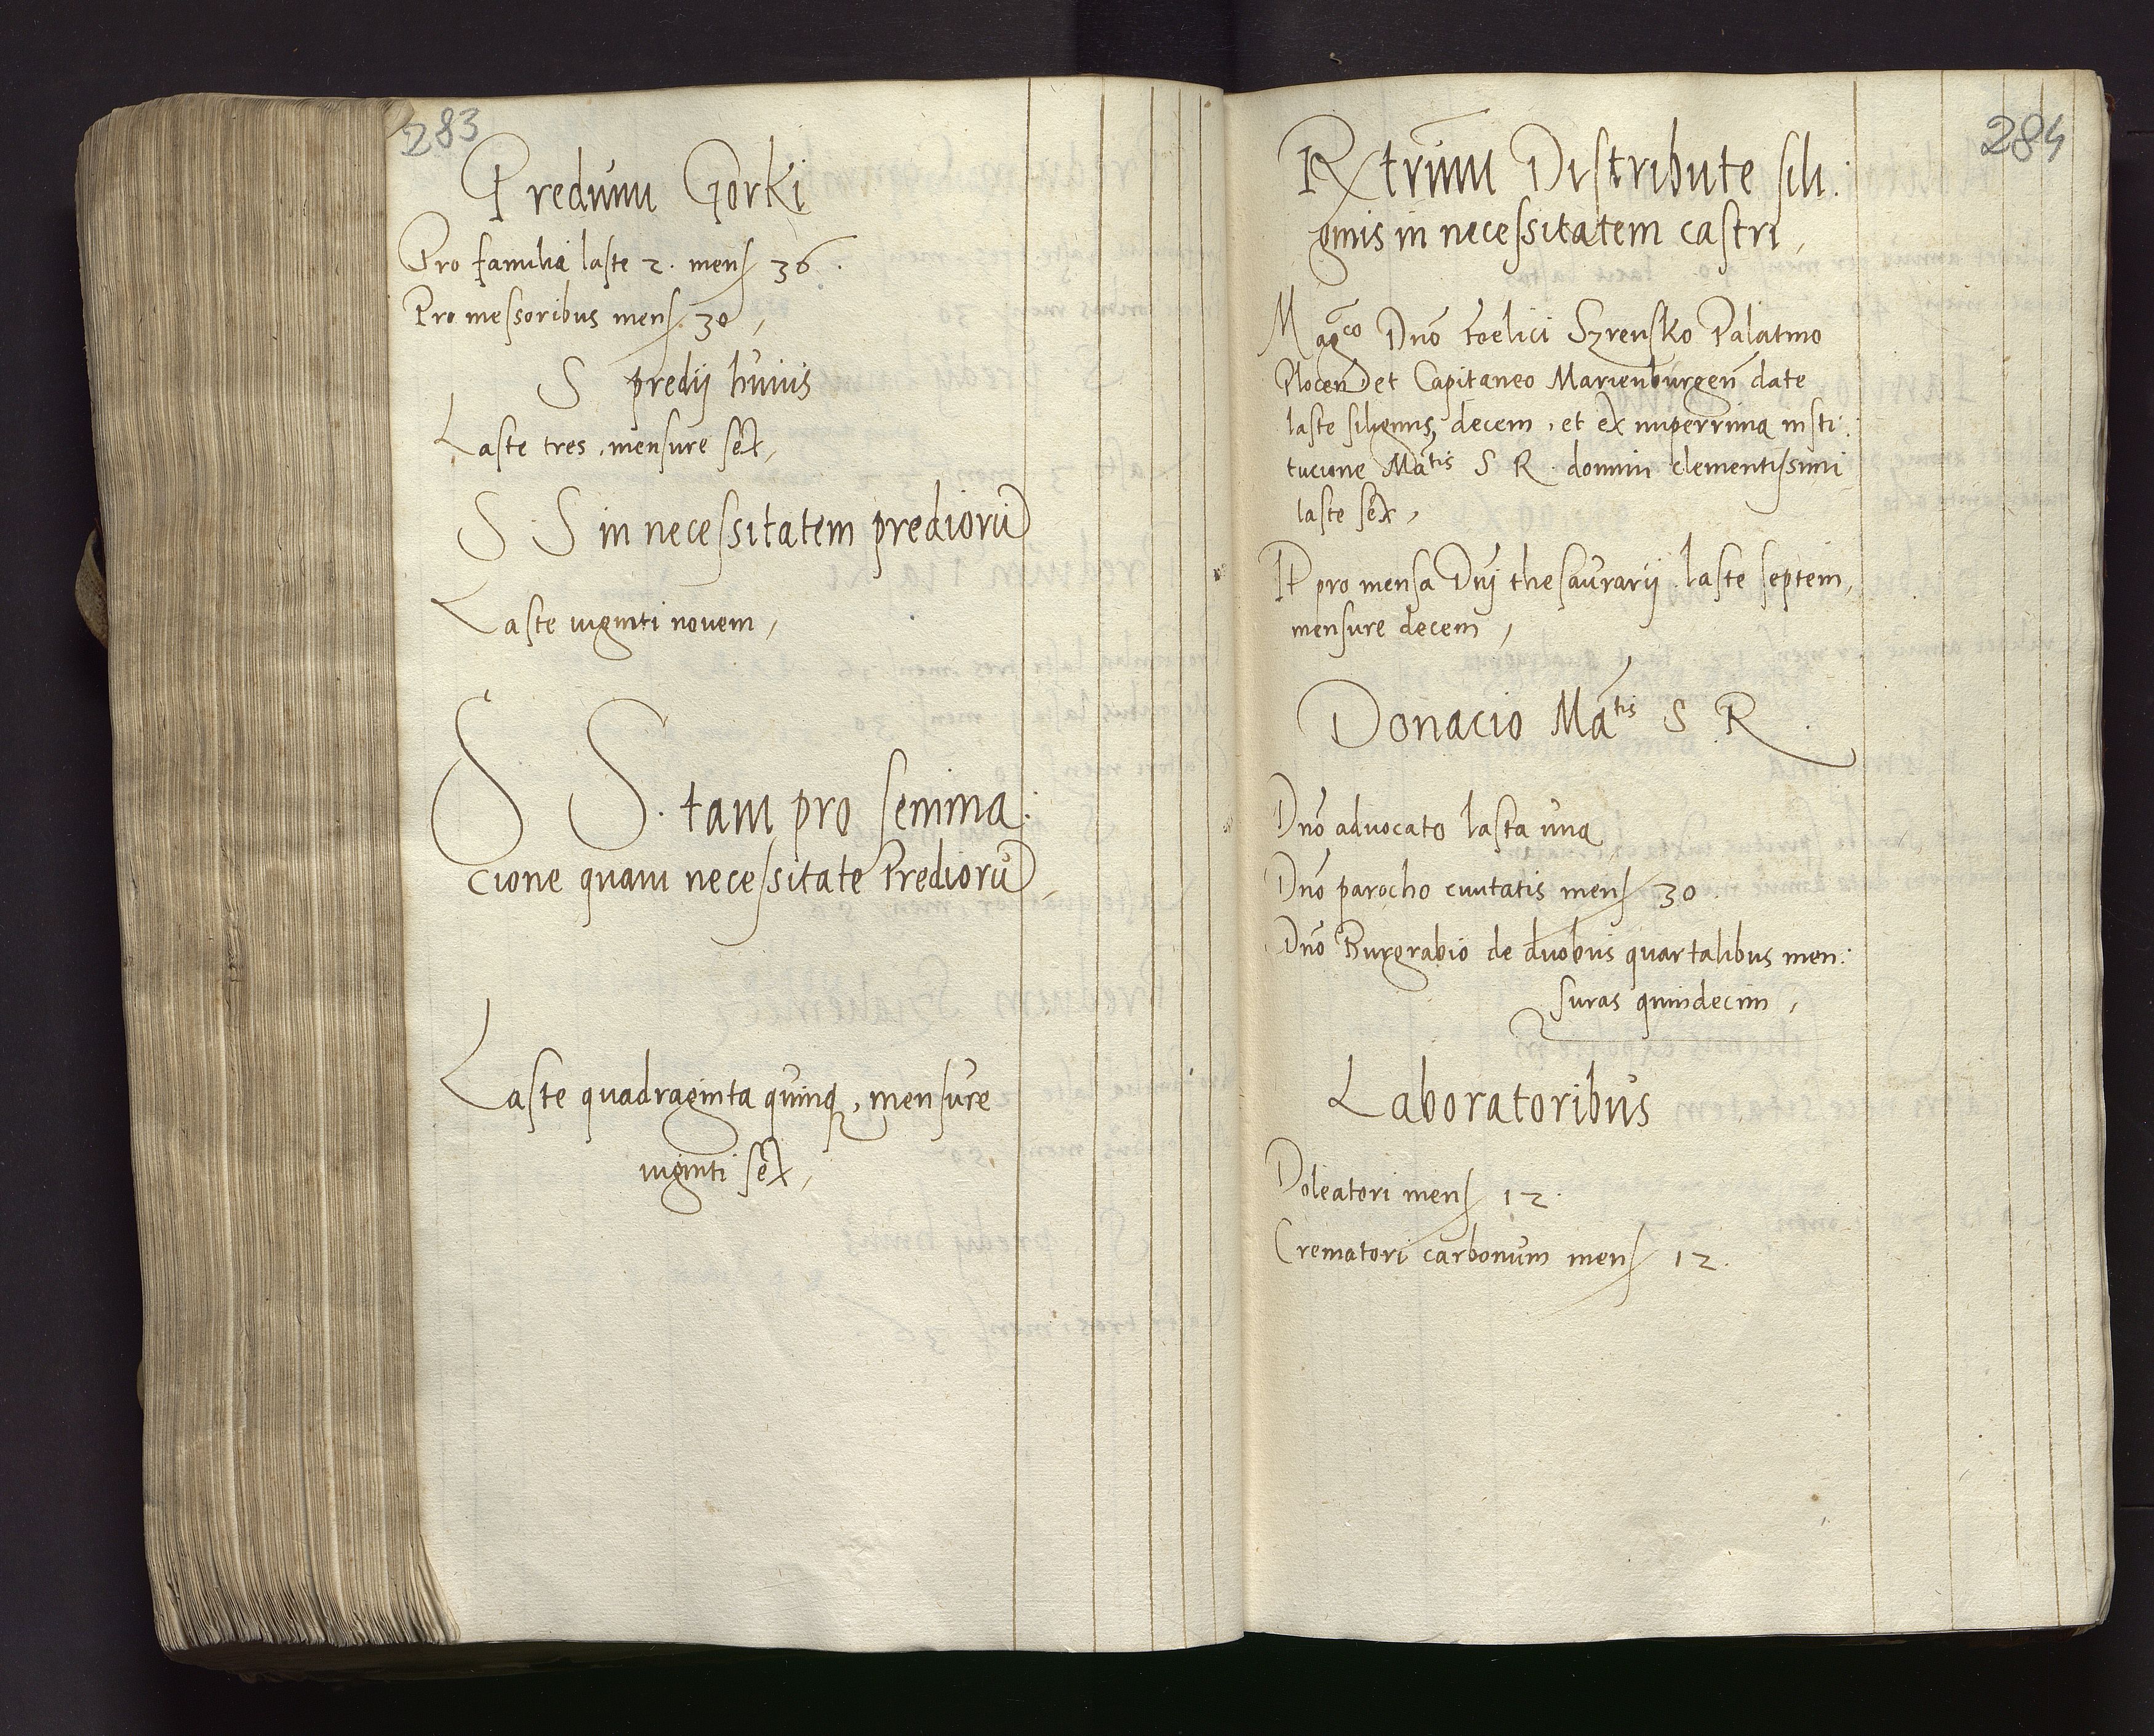 283
Predium Gorki
Pro familia laste 2. mens 36.
Pro messoribus mens 30,
S predij huius
Laste tres, mensure sex,
S S in necessitatem predioru
Laste viginti novem,
S S. tam pro semina:
cione quam necessitate Predioru,
Laste quadraginta quinq, mensure
viginti sex,
284
Distribute sili:
ginis in necessitatem castri,
Magco Dno Foelici Szrensko Palatino
Plocen et Capitaneo Marienburgen date
laste siliginis, decem, et ex nuperrima insti:
tucione Matis S R domini clementissimi
laste sex,
It pro mensa Dnj thesaurarij laste septem,
mensure decem,
Donacio Matis S R.
Dno advocato lasta una
Dno parocho civitatis mens 30.
Dno Burgrabio de duobus quartalibus men:
suras quindecim,
Laboratoribus
Doleatori mens 12.
Crematori carbonum mens 12.